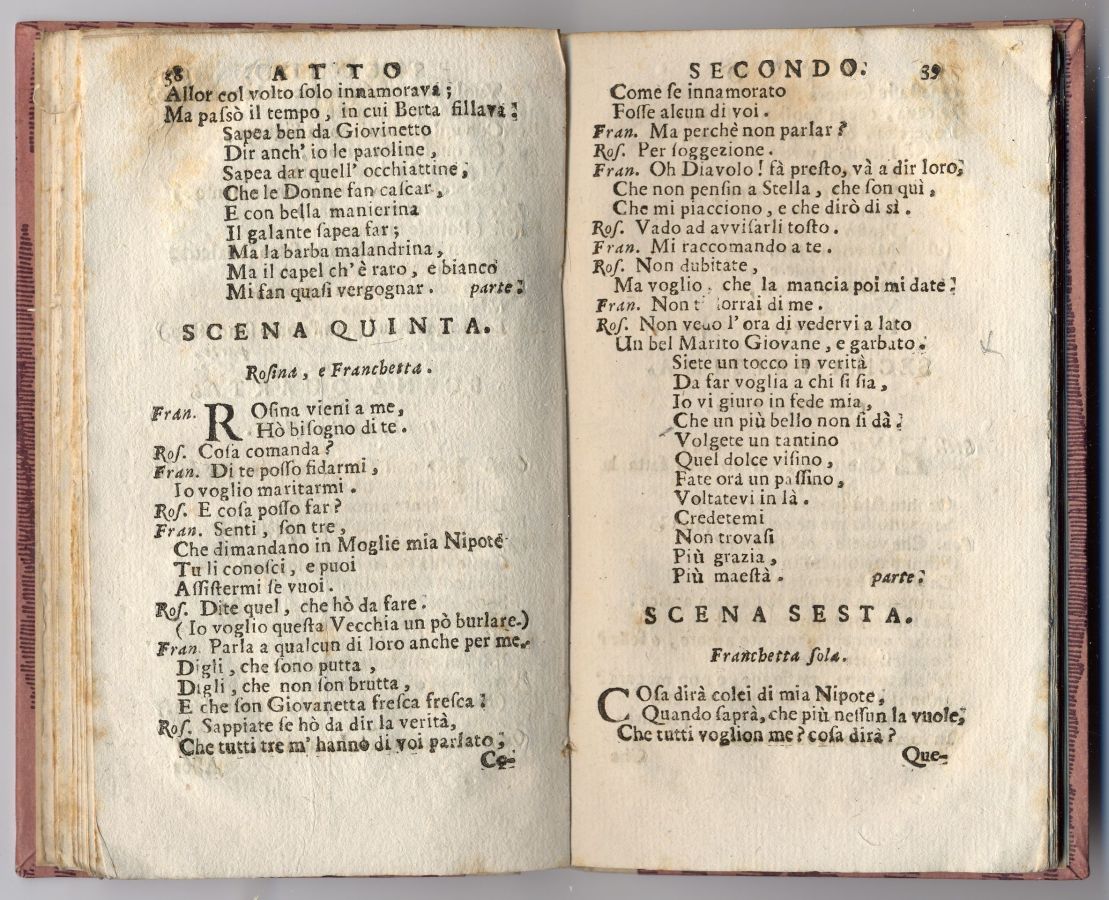 58 ATTO
Allor col volto ſolo innamorava;
Ma paſsò il tempo, in cui Berta fillava:
Sapea ben da Giovinetto
Dir anch' io le paroline,
Sapea dar quell' occhiattine;
Che le Donne fan caſcar,
E con bella manierina
Il galante ſapea far;
Ma la barba malandrina,
Ma il capel ch' è raro, e bianco
Mi fan quaſi vergognar. parte:
SCENA QUINTA.
Roſina, e Franchetta.
Fran. ROſina vieni a me,
Hò biſogno di te.
Roſ. Coſa comanda?
Fran. Di te poſſo fidarmi,
Io voglio maritarmi.
Roſ. E coſa poſſo far?
Fran. Senti, ſon tre,
Che dimandano in Moglie mia Nipote
Tu li conoſci, e puoi
Aſſiſtermi ſe vuoi.
Roſ. Dite quel, che hò da fare.
(Io voglio queſta Vecchia un pò burlare.)
Fran. Parla a qualcun di loro anche per me.
Digli, che ſono putta,
Digli, che non ſon brutta,
E che ſon Giovanetta freſca freſca:
Roſ. Sappiate ſe hò da dir la verità,
Che tutti tre m' hanno di voi parlato;
Co-
SECONDO. 59
Come ſe innamorato
Foſſe alcun di voi.
Fran. Ma perchè non parlar?
Roſ. Per ſoggezione.
Fran. Oh Diavolo! fà preſto, và a dir loro;
Che non penſin a Stella, che ſon quì,
Che mi piacciono, e che dirò di sì.
Roſ. Vado ad avviſarli toſto.
Fran. Mi raccomando a te.
Roſ. Non dubitate,
Ma voglio, che la mancia poi mi date:
Fran. Non di me.
Roſ. Non vedo l' ora di vedervi a lato
Un bel Marito Giovane, e garbato.
Siete un tocco in verità
Da far voglia a chi ſi ſia,
Io vi giuro in fede mia,
Che un più bello non ſi dà:
Volgete un tantino
Quel dolce viſino,
Fate ora un paſſino,
Voltatevi in là.
Credetemi
Non trovaſi
Più grazia,
Più maeſtà. parte:
SCENA SESTA.
Franchetta ſola.
COſa dirà colei di mia Nipote,
Quando ſaprà, che più neſſun la vuole;
Che tutti voglion me? coſa dirà?
Que-